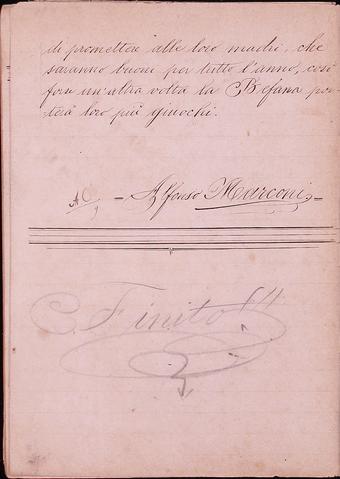 di promettere alle loro madri, che
saranno buoni per tutto l'anno, così
forse un'altra volta la Befana por-
terà loro più giuochi.
- Alfonso Marconi -
Finito!!